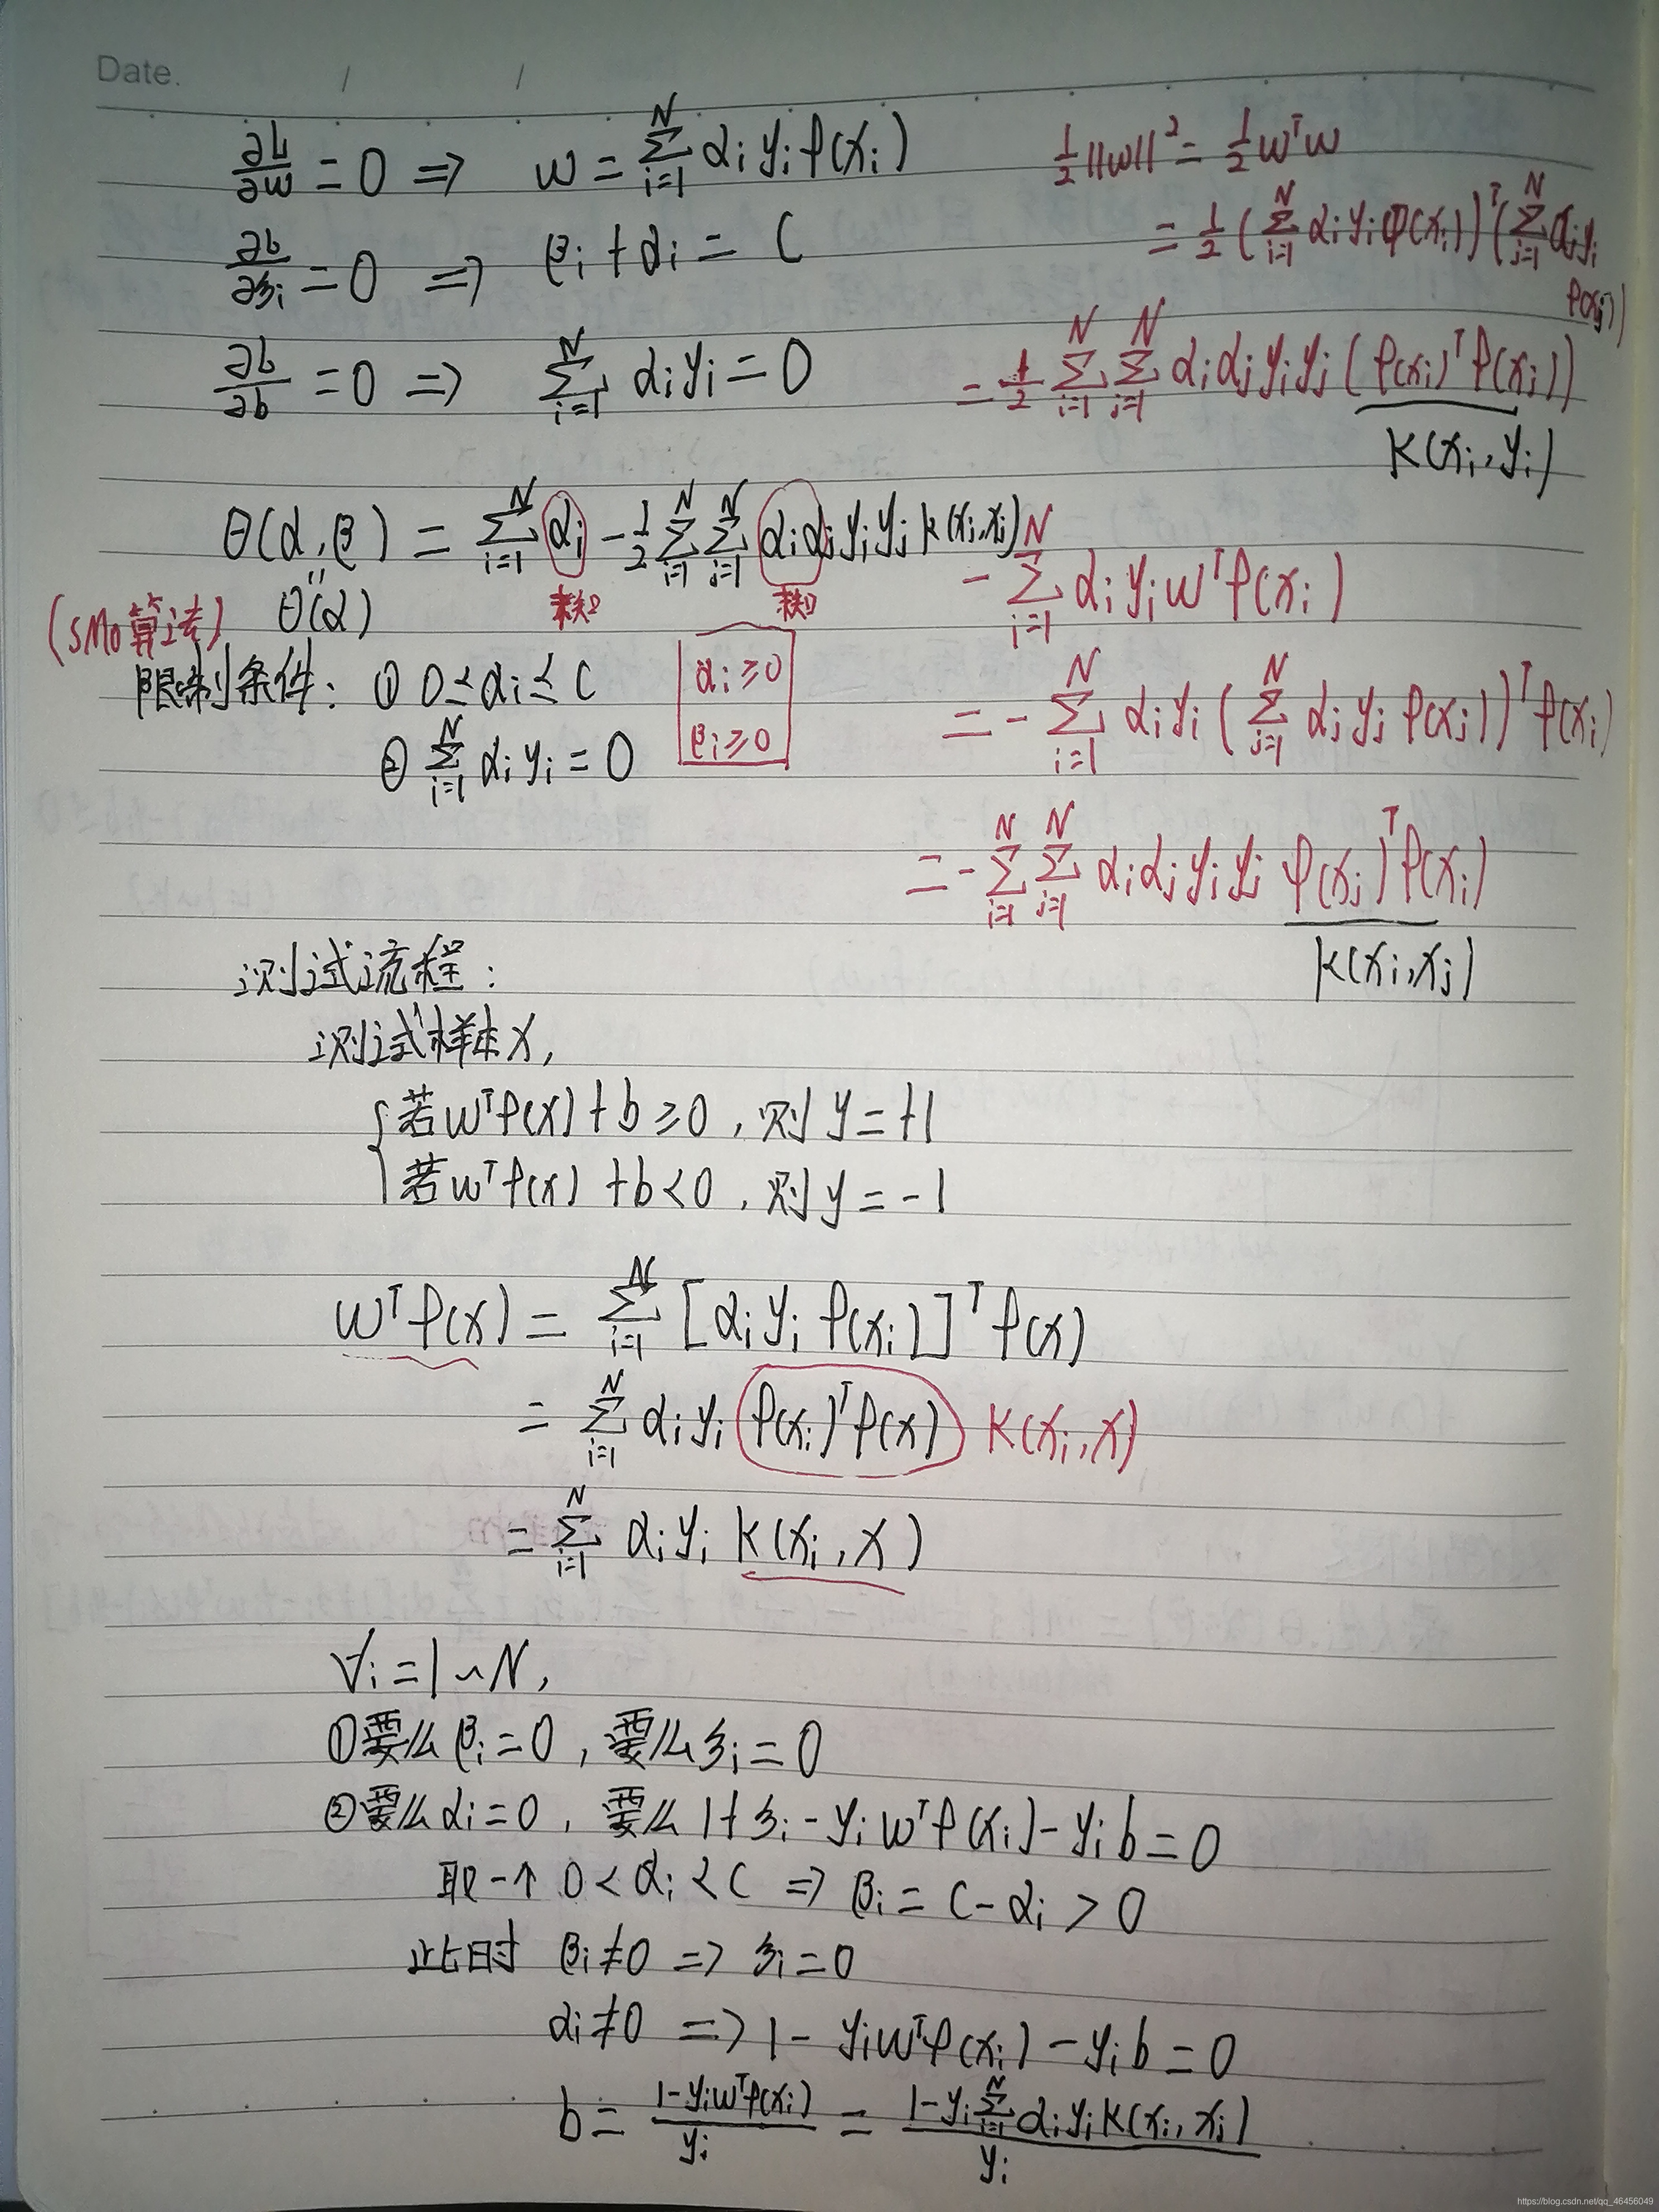 Date. / /
∂L/∂w = 0 ⇒ w = Σ_{i=1}^{N} α_i y_i φ(x_i)
∂L/∂ξ_i = 0 ⇒ β_i + α_i = C
∂L/∂b = 0 ⇒ Σ_{i=1}^{N} α_i y_i = 0
½||w||² = ½ w^T w
= ½ (Σ_{i=1}^{N} α_i y_i φ(x_i))^T (Σ_{j=1}^{N} α_j y_j
φ(x_j))
= ½ Σ_{i=1}^{N} Σ_{j=1}^{N} α_i α_j y_i y_j (φ(x_i)^T φ(x_j))
K(x_i, y_i)
θ(α, β) = Σ_{i=1}^{N} α_i - ½ Σ_{i=1}^{N} Σ_{j=1}^{N} α_i α_j y_i y_j K(x_i, x_j)
(SMO算法) θ(α) 未知 未知
限制条件: ① 0 ≤ α_i ≤ C
② Σ_{i=1}^{N} α_i y_i = 0
α_i ≥ 0
β_i ≥ 0
- Σ_{i=1}^{N} α_i y_i w^T φ(x_i)
= - Σ_{i=1}^{N} α_i y_i (Σ_{j=1}^{N} α_j y_j φ(x_j))^T φ(x_i)
= - Σ_{i=1}^{N} Σ_{j=1}^{N} α_i α_j y_i y_j φ(x_j)^T φ(x_i)
K(x_i, x_j)
测试流程:
测试样本X,
若 w^T φ(x) + b ≥ 0, 则 y = +1
若 w^T φ(x) + b < 0, 则 y = -1
w^T φ(x) = Σ_{i=1}^{N} [α_i y_i φ(x_i)]^T φ(x)
= Σ_{i=1}^{N} α_i y_i φ(x_i)^T φ(x) K(x_i, x)
= Σ_{i=1}^{N} α_i y_i K(x_i, x)
∀i = 1 ~ N,
①要么 β_i = 0, 要么 ξ_i = 0
②要么 α_i = 0, 要么 1 + ξ_i - y_i w^T φ(x_i) - y_i b = 0
取一个 0 < α_i < C ⇒ β_i = C - α_i > 0
此时 β_i ≠ 0 ⇒ ξ_i = 0
α_i ≠ 0 ⇒ 1 - y_i w^T φ(x_i) - y_i b = 0
b = (1 - y_i w^T φ(x_i)) / y_i = (1 - y_i Σ_{i=1}^{N} α_i y_i K(x_i, x_j)) / y_i
https://blog.csdn.net/qq_46456049